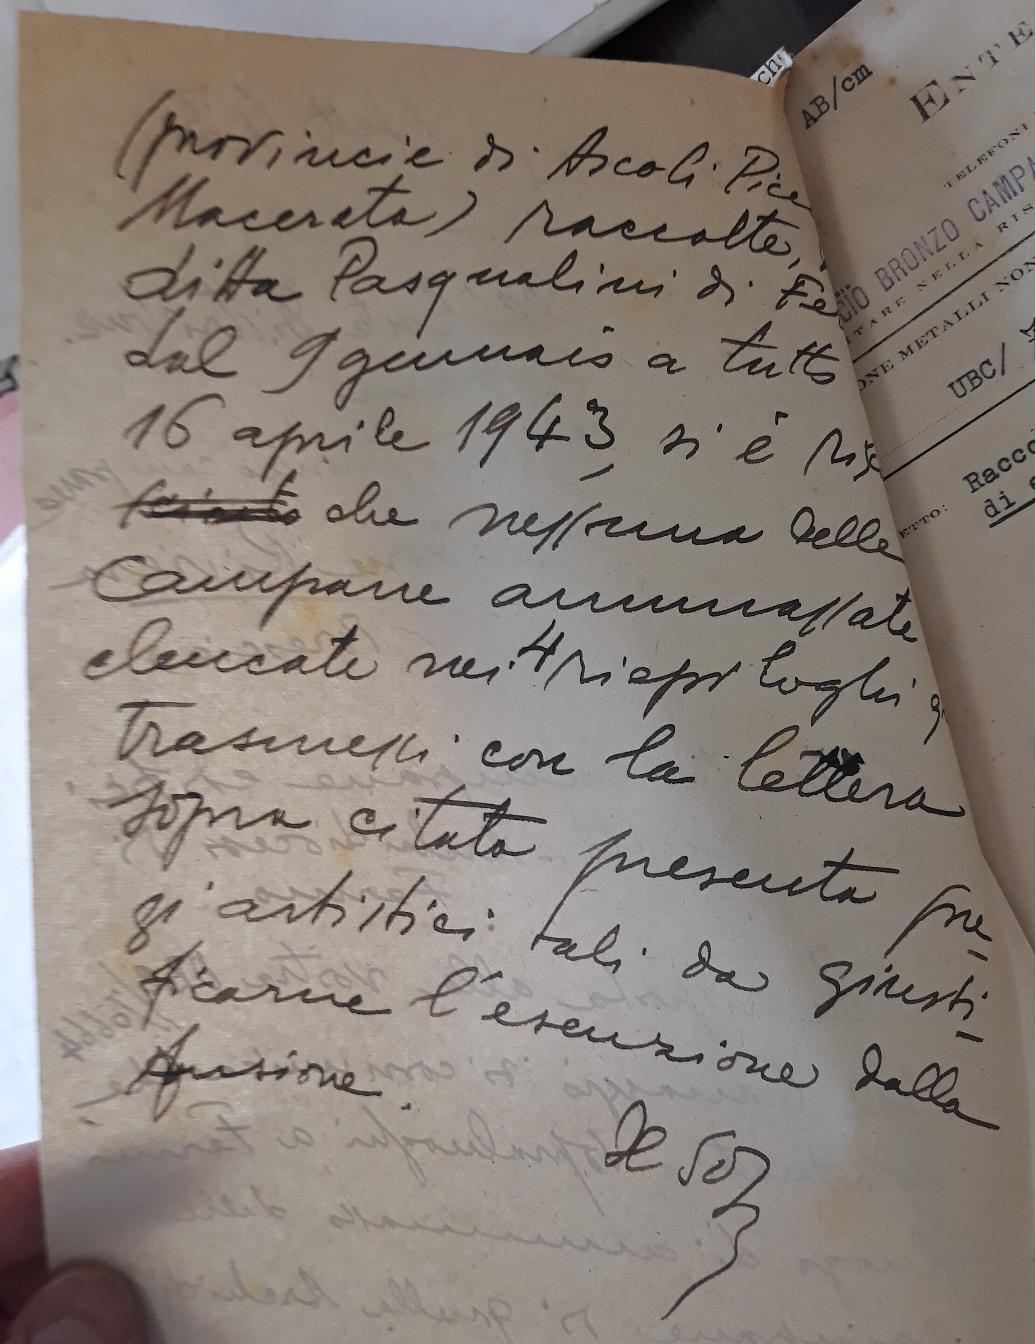 (provincie di Ascoli Pice
Macerata) raccolte,
ditta Pasqualini di Fe
dal 9 gennaio a tutto
16 aprile 1943, si è ris
che nessuna delle
Campane ammassate
elencate nei 4 riepiloghi
trasmessi con la lettera
sopra citata presenta pre-
gi artistici tali da giusti-
ficarne l'esenzione dalla
fusione.
Il Sop
ch
AB/cm
ENTE
TELEFONI
CIO BRONZO CAMPA
TARE NELLA RIS
ONE METALLI NON
UBC/
ETTO: Racco
di